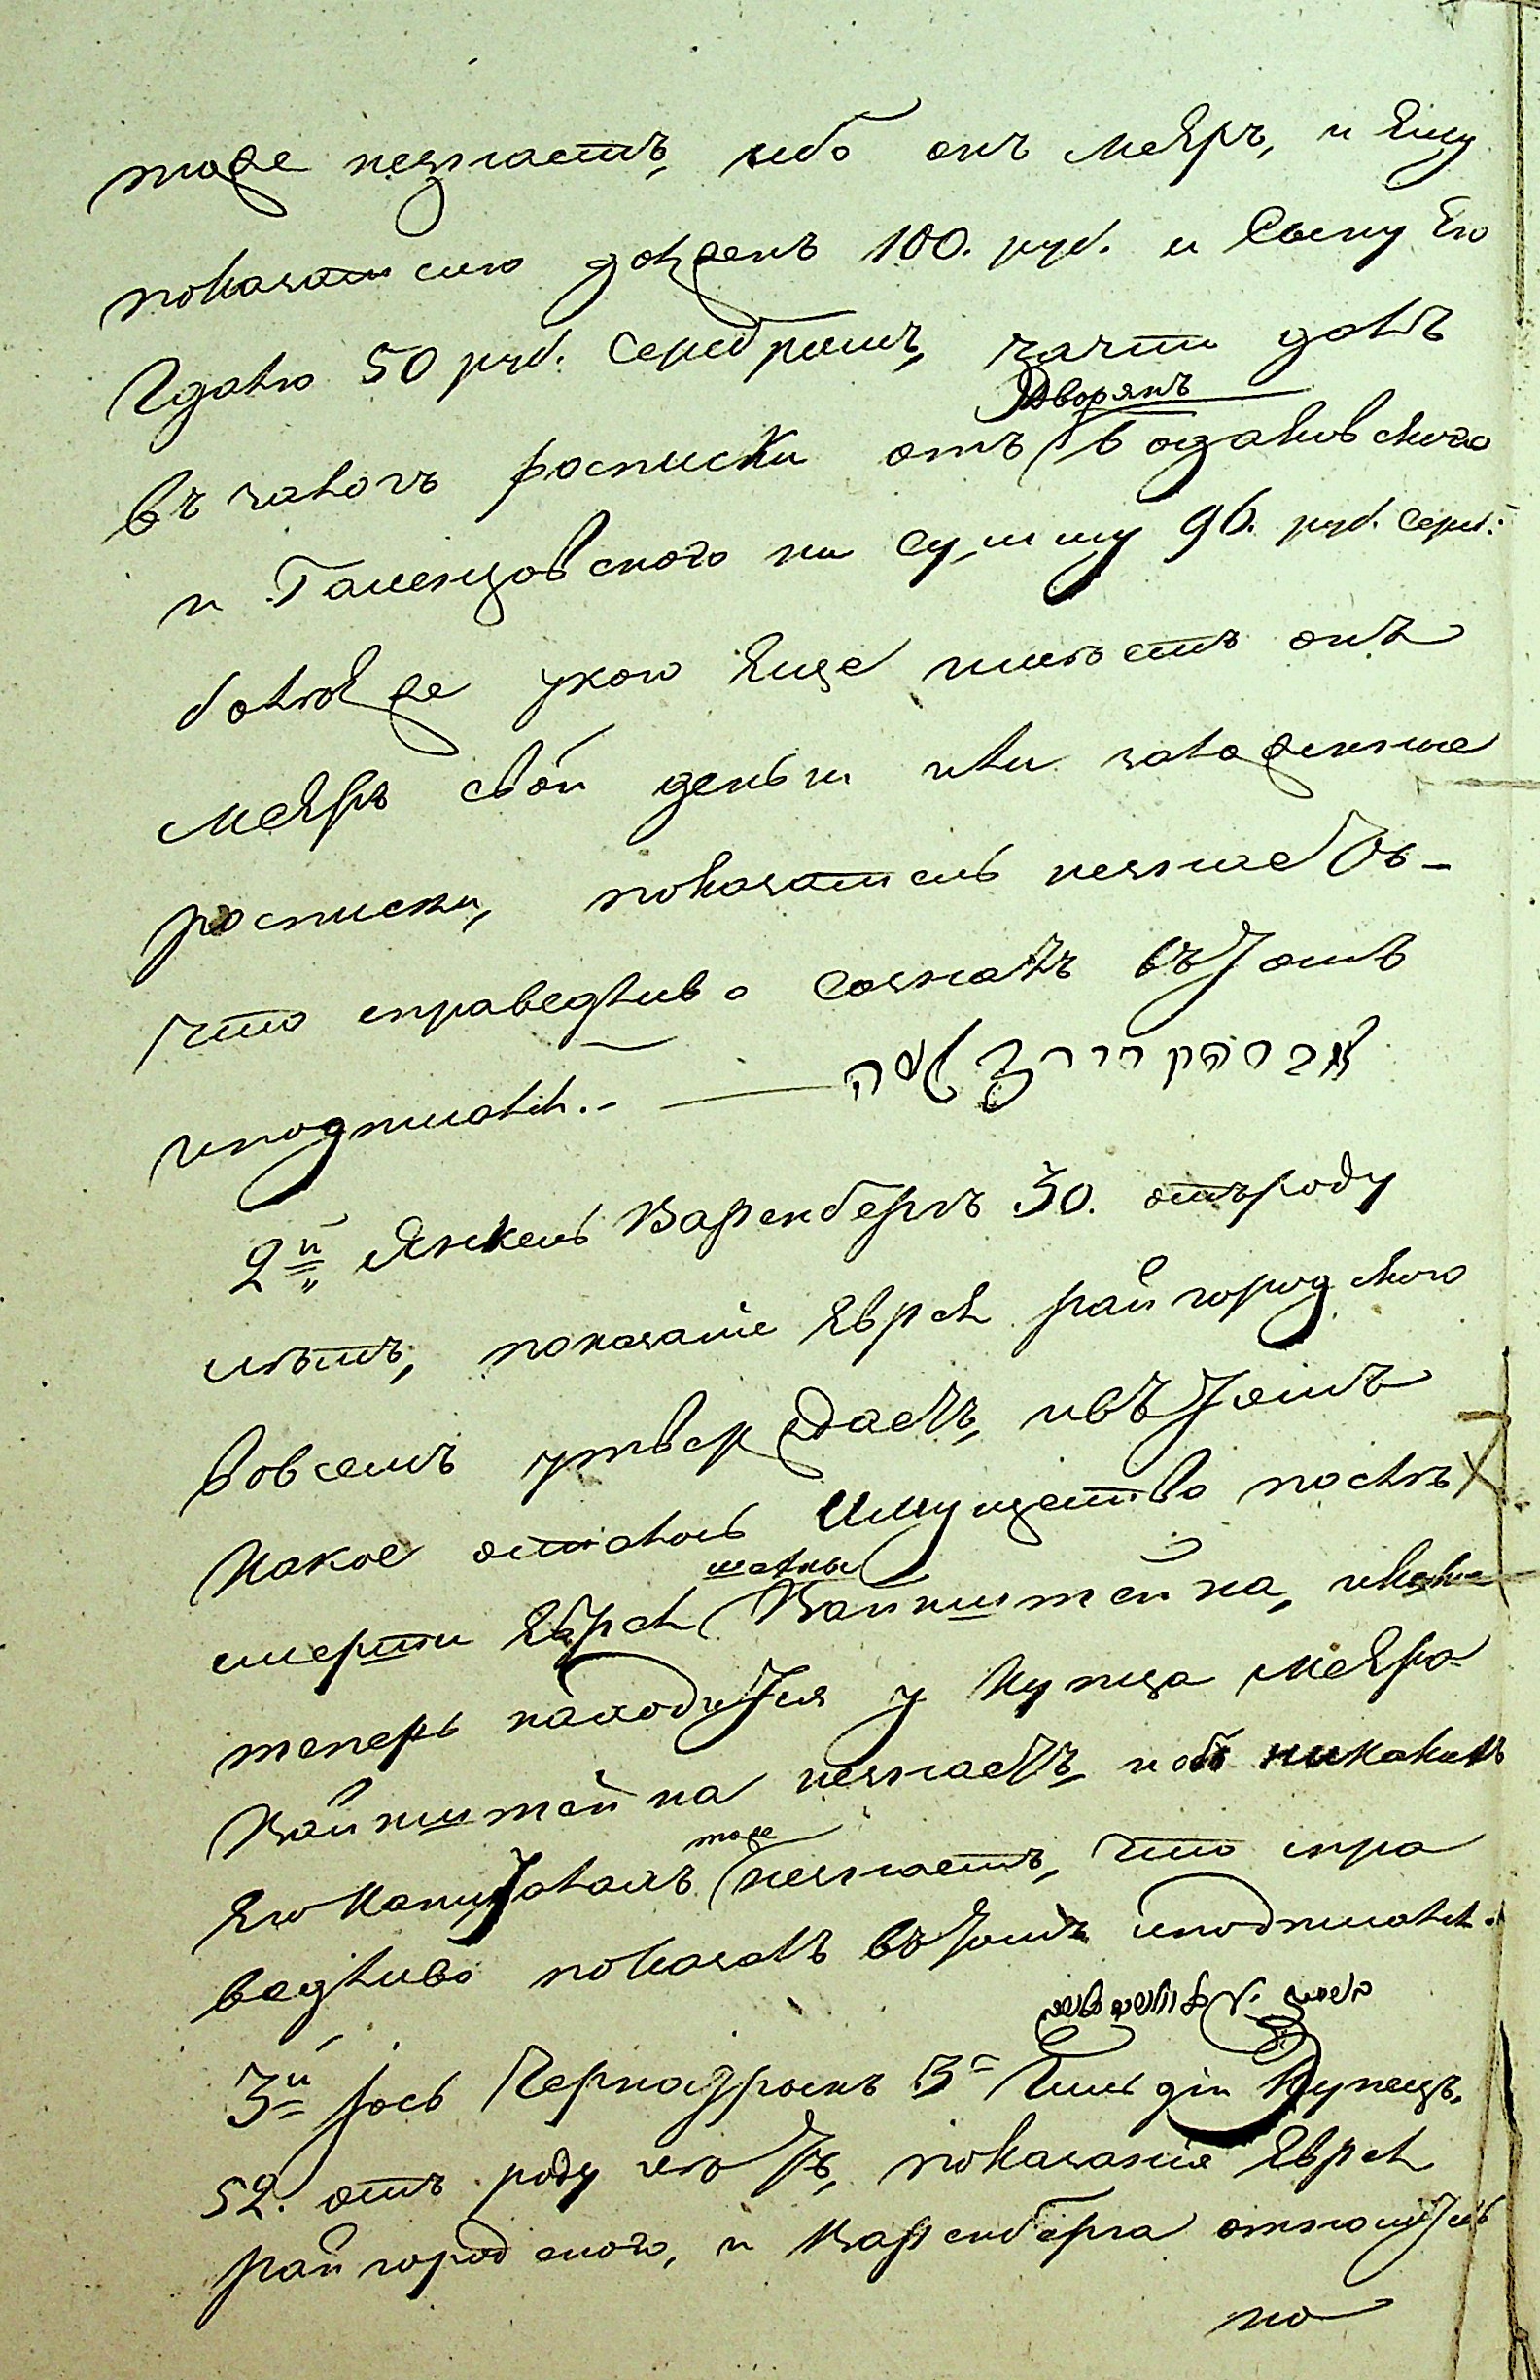 тоже незнаетъ, ибо онъ Меяръ, и Ему
показателю долженъ 100. руб. и Сыну Его
Удалю 50 руб. Серебромъ, зачти далъ
въ залогъ росписки отъ Дворянъ Богдановского
и Гаменцовского на сумму 96. руб. сереб:
болѣеже укого Еще имѣетъ онъ
Меяръ свои деньги или заложенные
росписки, показатель незнаетъ –
Что справедливо сознавъ въ томъ
иподписалъ. –
2й Янкель Варенбергъ 30. отъроду
лѣтъ, показаніе Еврея райгородского
вовсемъ утверждаетъ, ивъ томъ
какое осталось Имущество послѣ
смерти Еврея Шавлы Вайнштейна, икакое
теперь находится у Купца Меяра
Вайнштейна незнаетъ, иоб никакихъ
Его Капиталахъ тоже незнаетъ, что спра
ведливо показалъ въ томъ иподписалъ.
3й Іось Черноброскъ 3й Гильдіи Купецъ,
52. отъ роду лѣтъ, показаніе Еврея
райгородского, и Варенберга относительно
но